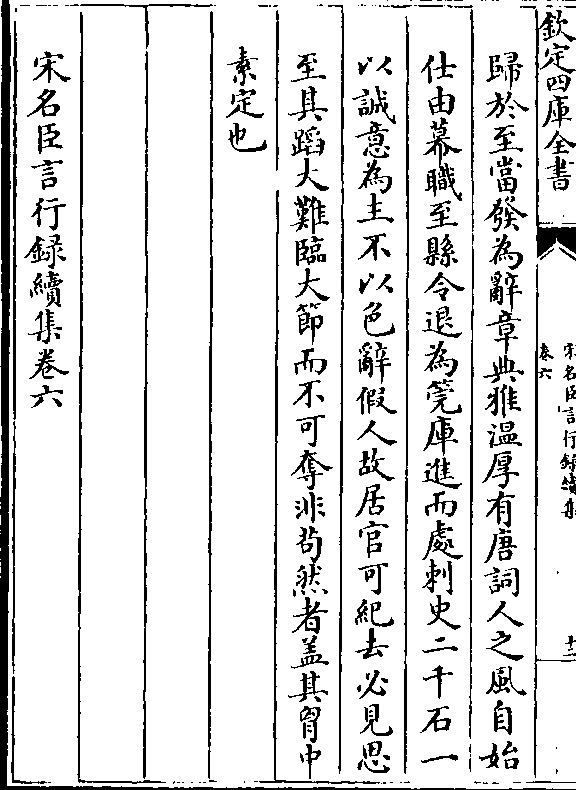 欽定四庫全書
宋名臣言行録續集
卷六
十二
歸於至當發為辭章典雅溫厚有唐詞人之風自始
仕由幕職至縣令退為筦庫進而處刺史二千石一
以誠意為主不以色辭假人故居官可紀去必見思
至其蹈大難臨大節而不可奪非茍然者盖其胷中
素定也
宋名臣言行録續集卷六